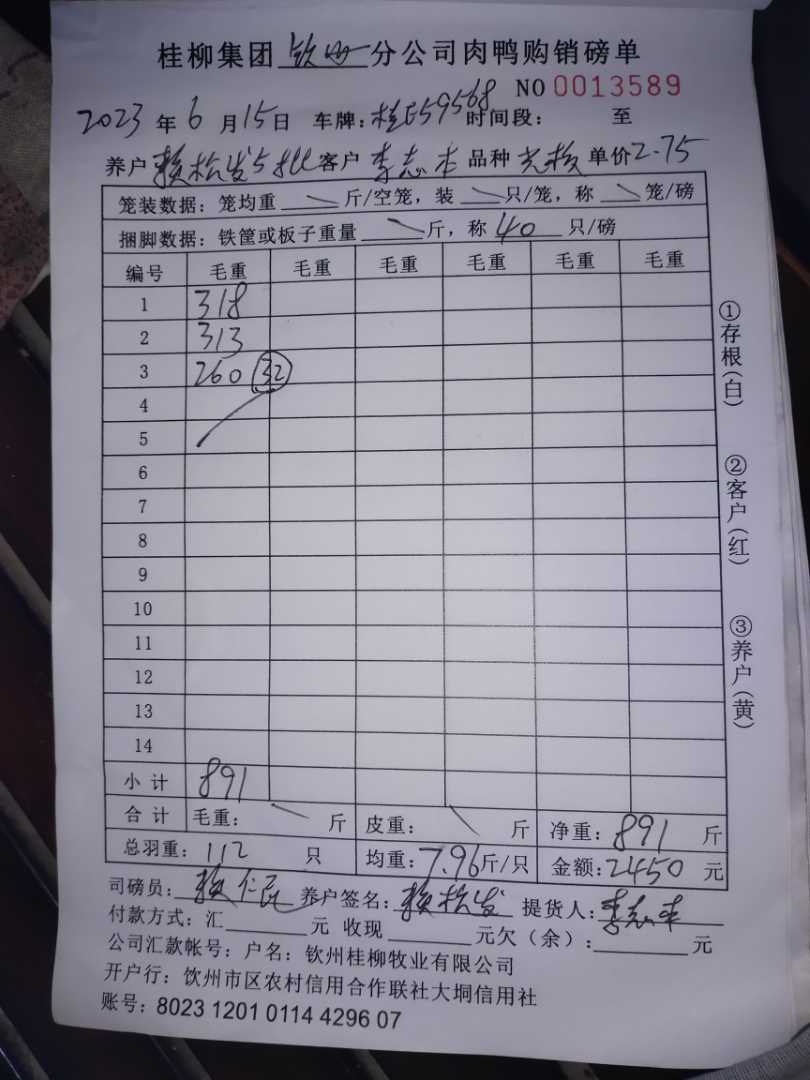 桂柳集团 钦州 分公司肉鸭购销磅单
NO 0013589
2023 年 6 月 15 日 车牌：桂E59568 时间段： 至
养户 赖松发5批 客户 李志丰 品种 光核 单价 2.75
笼装数据：笼均重 斤/空笼，装 只/笼，称 笼/磅
捆脚数据：铁筐或板子重量 斤，称 40 只/磅
编号 毛重 毛重 毛重 毛重 毛重 毛重
1 318
2 313
3 260 32
4
5
6
7
8
9
10
11
12
13
14
小 计 891
合 计 毛重： 斤 皮重： 斤 净重：891 斤
总羽重：112 只 均重：7.96 斤/只 金额：2450 元
司磅员：赖仁民 养户签名：赖松发 提货人：李志丰
付款方式：汇 元 收现 元欠（余）： 元
公司汇款帐号：户名：钦州桂柳牧业有限公司
开户行：钦州市区农村信用合作联社大垌信用社
账号：8023 1201 0114 4296 07
①存根（白）
②客户（红）
③养户（黄）